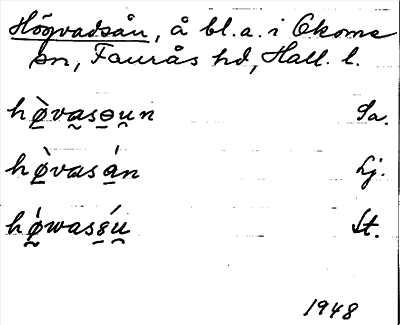 Högvadsån, å bl.a. i Okome
sn, Faurås hd, Hall. l.
hø̀vasɵu̯n Sa.
hø̀vasán Lj.
hǿwasǵu̯ St.
1948